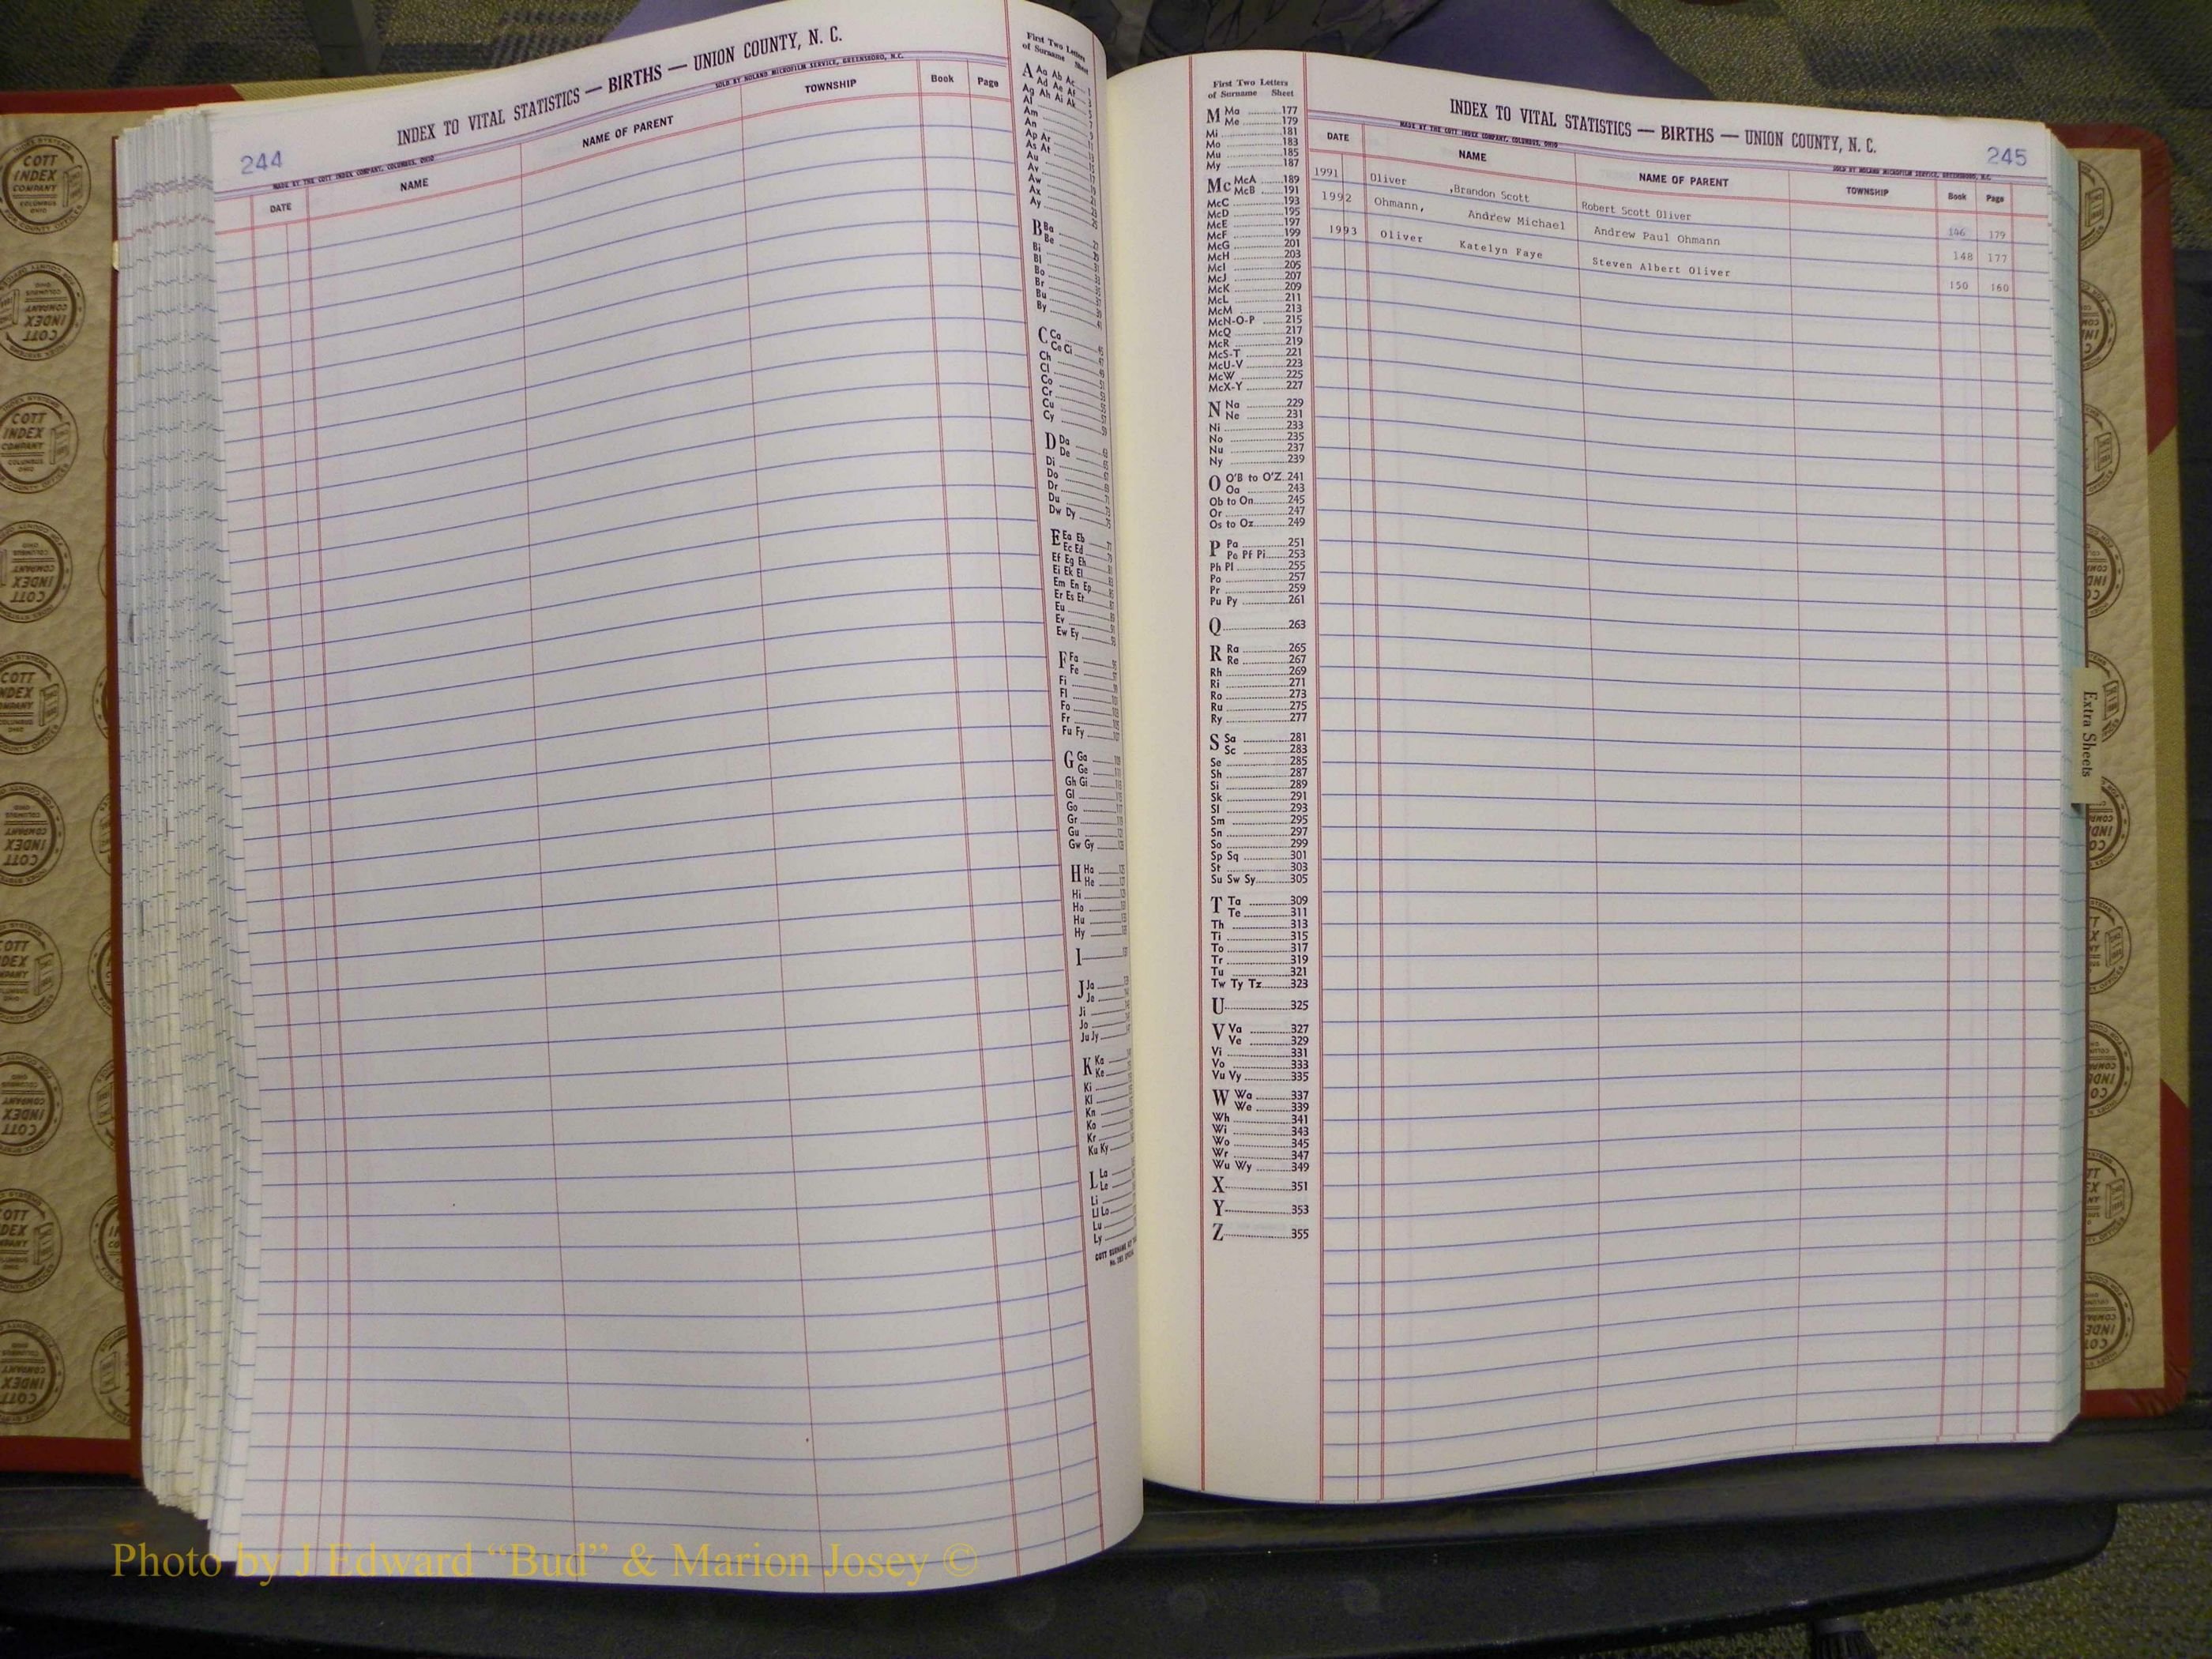 244
INDEX TO VITAL STATISTICS — BIRTHS — UNION COUNTY, N. C.
MADE BY THE COTT INDEX COMPANY, COLUMBUS, OHIO
SOLD BY NOLAND MICROFILM SERVICE, GREENSBORO, N.C.
DATE NAME NAME OF PARENT TOWNSHIP Book Page
First Two Letters
of Surname Sheet
A Aa Ab Ac
Ad Ae Af
Ag Ah Ai Ak
Al
Am
An
Ap Ar
As At
Au
Av
Aw
Ax
Ay
B Ba
Be
Bi
Bl
Bo
Br
Bu
By
C Ca
Ce Ci
Ch
Cl
Co
Cr
Cu
Cy
D Da
De
Di
Do
Dr
Du
Dw Dy
E Ea Eb
Ec Ed
Ef Eg Eh
Ei Ek El
Em En Ep
Er Es Et
Eu
Ev
Ew Ey
F Fa
Fe
Fi
Fl
Fo
Fr
Fu Fy
G Ga
Ge
Gh Gi
Gl
Go
Gr
Gu
Gw Gy
H Ha
He
Hi
Ho
Hu
Hy
I
J Ja
Je
Ji
Jo
Ju Jy
K Ka
Ke
Ki
Kl
Kn
Ko
Kr
Ku Ky
L La
Le
Li
Ll Lo
Lu
Ly
First Two Letters
of Surname Sheet
M Ma 177
Me 179
Mi 181
Mo 183
Mu 185
My 187
Mc McA 189
McB 191
McC 193
McD 195
McE 197
McF 199
McG 201
McH 203
McI 205
McJ 207
McK 209
McL 211
McM 213
McN-O-P 215
McQ 217
McR 219
McS-T 221
McU-V 223
McW 225
McX-Y 227
N Na 229
Ne 231
Ni 233
No 235
Nu 237
Ny 239
O O'B to O'Z 241
Oa 243
Ob to On 245
Or 247
Os to Oz 249
P Pa 251
Pe Pf Pi 253
Ph Pl 255
Po 257
Pr 259
Pu Py 261
Q 263
R Ra 265
Re 267
Rh 269
Ri 271
Ro 273
Ru 275
Ry 277
S Sa 281
Sc 283
Se 285
Sh 287
Si 289
Sk 291
Sl 293
Sm 295
Sn 297
So 299
Sp Sq 301
St 303
Su Sw Sy 305
T Ta 309
Te 311
Th 313
Ti 315
To 317
Tr 319
Tu 321
Tw Ty Tz 323
U 325
V Va 327
Ve 329
Vi 331
Vo 333
Vu Vy 335
W Wa 337
We 339
Wh 341
Wi 343
Wo 345
Wr 347
Wu Wy 349
X 351
Y 353
Z 355
INDEX TO VITAL STATISTICS — BIRTHS — UNION COUNTY, N. C.
245
MADE BY THE COTT INDEX COMPANY, COLUMBUS, OHIO
SOLD BY NOLAND MICROFILM SERVICE, GREENSBORO, N.C.
DATE NAME NAME OF PARENT TOWNSHIP Book Page
1991 Oliver ,Brandon Scott Robert Scott Oliver 146 179
1992 Ohmann, Andrew Michael Andrew Paul Ohmann 148 177
1993 Oliver Katelyn Faye Steven Albert Oliver 150 160
Extra Sheets
COTT
INDEX
COMPANY
COLUMBUS
OHIO
Photo by J Edward “Bud” & Marion Josey ©